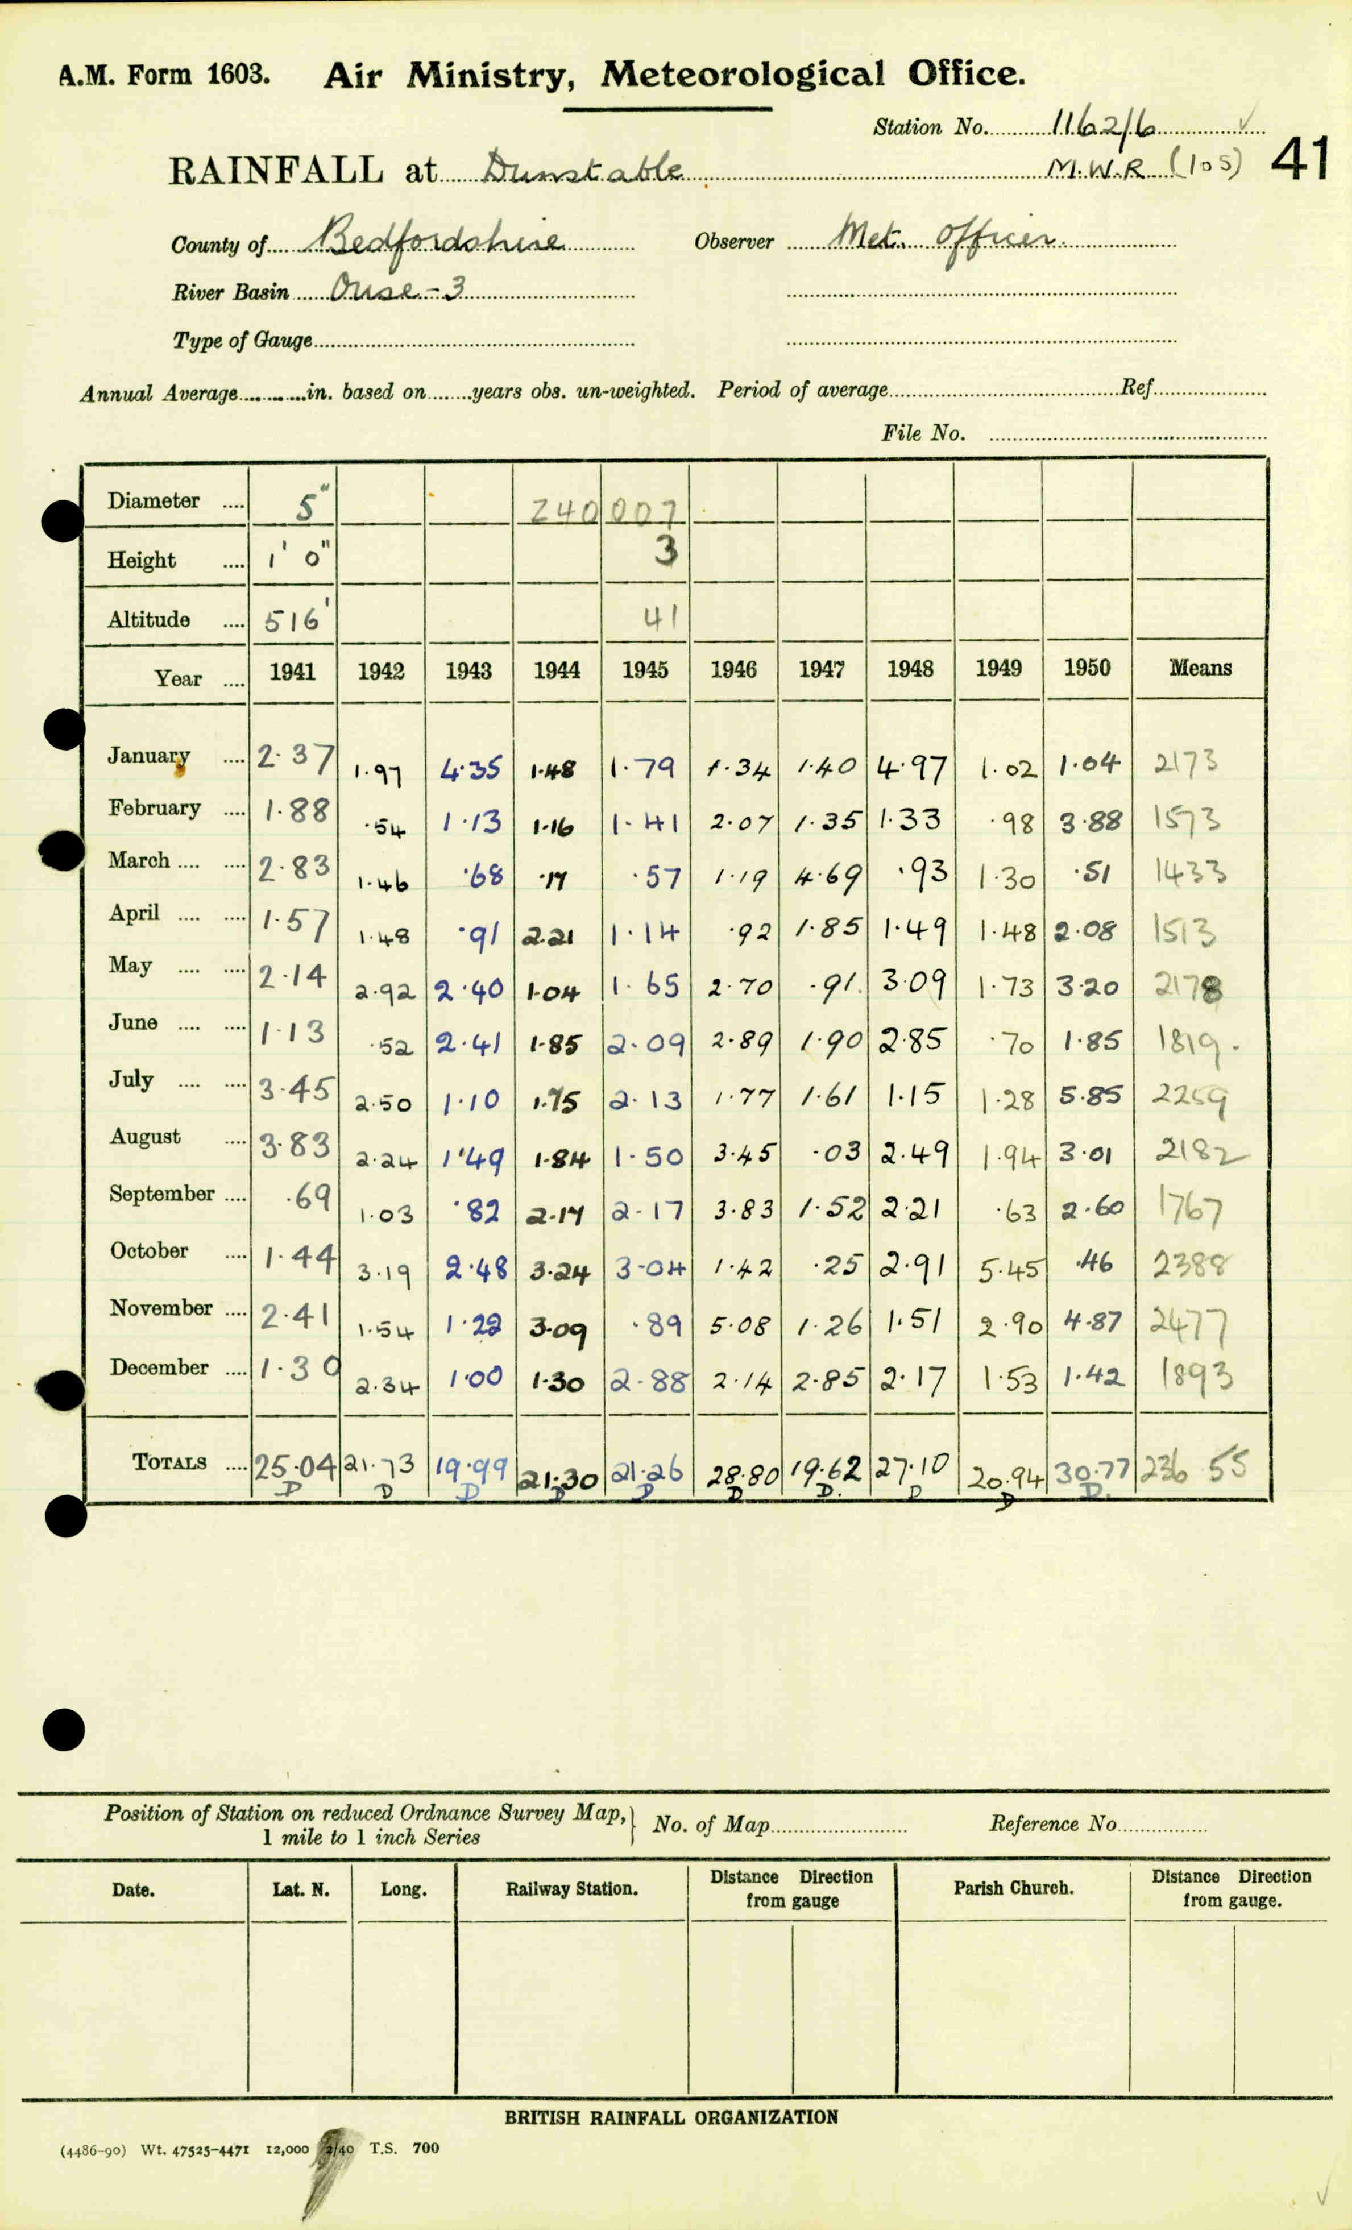 A.M. Form 1603. Air Ministry, Meteorological Office.
Station No. 1162/6 ✓
RAINFALL at Dunstable M.W.R (105) 41
County of Bedfordshire Observer Met. Officer.
River Basin Ouse-3
Type of Gauge
Annual Average in. based on years obs. un-weighted. Period of average Ref
File No.
Diameter .... 5" 240007
Height .... 1' 0" 3
Altitude .... 516' 41
Year .... 1941 1942 1943 1944 1945 1946 1947 1948 1949 1950 Means
January .... 2.37 1.97 4.35 1.48 1.79 1.34 1.40 4.97 1.02 1.04 2173
February .... 1.88 .54 1.13 1.16 1.41 2.07 1.35 1.33 .98 3.88 1573
March .... .... 2.83 1.46 .68 .17 .57 1.19 4.69 .93 1.30 .51 1433
April .... .... 1.57 1.48 .91 2.21 1.14 .92 1.85 1.49 1.48 2.08 1513
May .... .... 2.14 2.92 2.40 1.04 1.65 2.70 .91 3.09 1.73 3.20 2178
June .... .... 1.13 .52 2.41 1.85 2.09 2.89 1.90 2.85 .70 1.85 1819.
July .... .... 3.45 2.50 1.10 1.75 2.13 1.77 1.61 1.15 1.28 5.85 2259
August .... 3.83 2.24 1.49 1.84 1.50 3.45 .03 2.49 1.94 3.01 2182
September .... .69 1.03 .82 2.17 2.17 3.83 1.52 2.21 .63 2.60 1767
October .... 1.44 3.19 2.48 3.24 3.04 1.42 .25 2.91 5.45 .46 2388
November .... 2.41 1.54 1.22 3.09 .89 5.08 1.26 1.51 2.90 4.87 2477
December .... 1.30 2.34 1.00 1.30 2.88 2.14 2.85 2.17 1.53 1.42 1893
TOTALS .... 25.04 21.73 19.99 21.30 21.26 28.80 19.62 27.10 20.94 30.77 236 55
D D D D D D D. D D D.
Position of Station on reduced Ordnance Survey Map, No. of Map Reference No
1 mile to 1 inch Series
Date. Lat. N. Long. Railway Station. Distance Direction from gauge Parish Church. Distance Direction from gauge.
BRITISH RAINFALL ORGANIZATION
(4486-90) Wt. 47525-4471 12,000 2/40 T.S. 700
✓